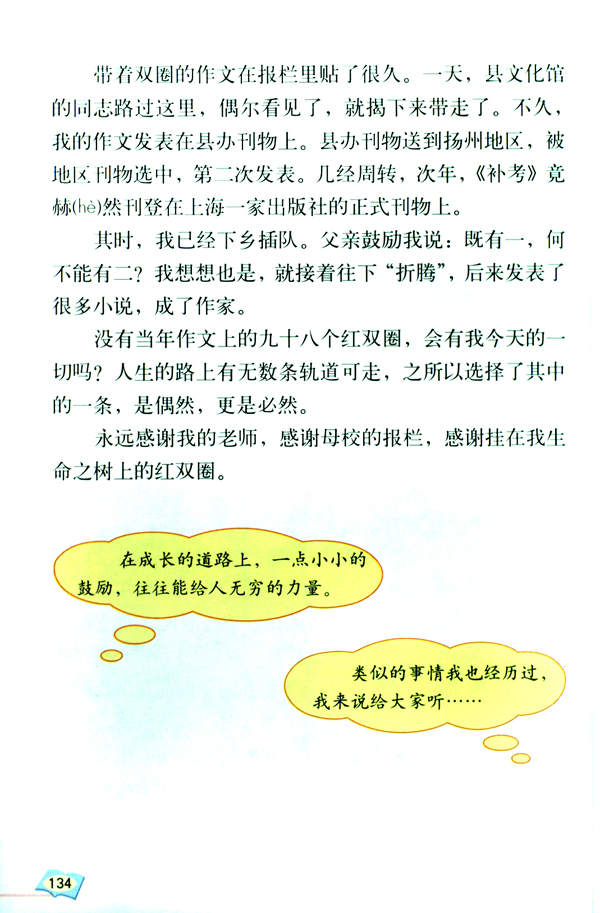 带着双圈的作文在报栏里贴了很久。一天，县文化馆
的同志路过这里，偶尔看见了，就揭下来带走了。不久，
我的作文发表在县办刊物上。县办刊物送到扬州地区，被
地区刊物选中，第二次发表。几经周转，次年，《补考》竟
赫(hè)然刊登在上海一家出版社的正式刊物上。
其时，我已经下乡插队。父亲鼓励我说：既有一，何
不能有二？我想想也是，就接着往下“折腾”，后来发表了
很多小说，成了作家。
没有当年作文上的九十八个红双圈，会有我今天的一
切吗？人生的路上有无数条轨道可走，之所以选择了其中
的一条，是偶然，更是必然。
永远感谢我的老师，感谢母校的报栏，感谢挂在我生
命之树上的红双圈。
在成长的道路上，一点小小的
鼓励，往往能给人无穷的力量。
类似的事情我也经历过，
我来说给大家听……
134